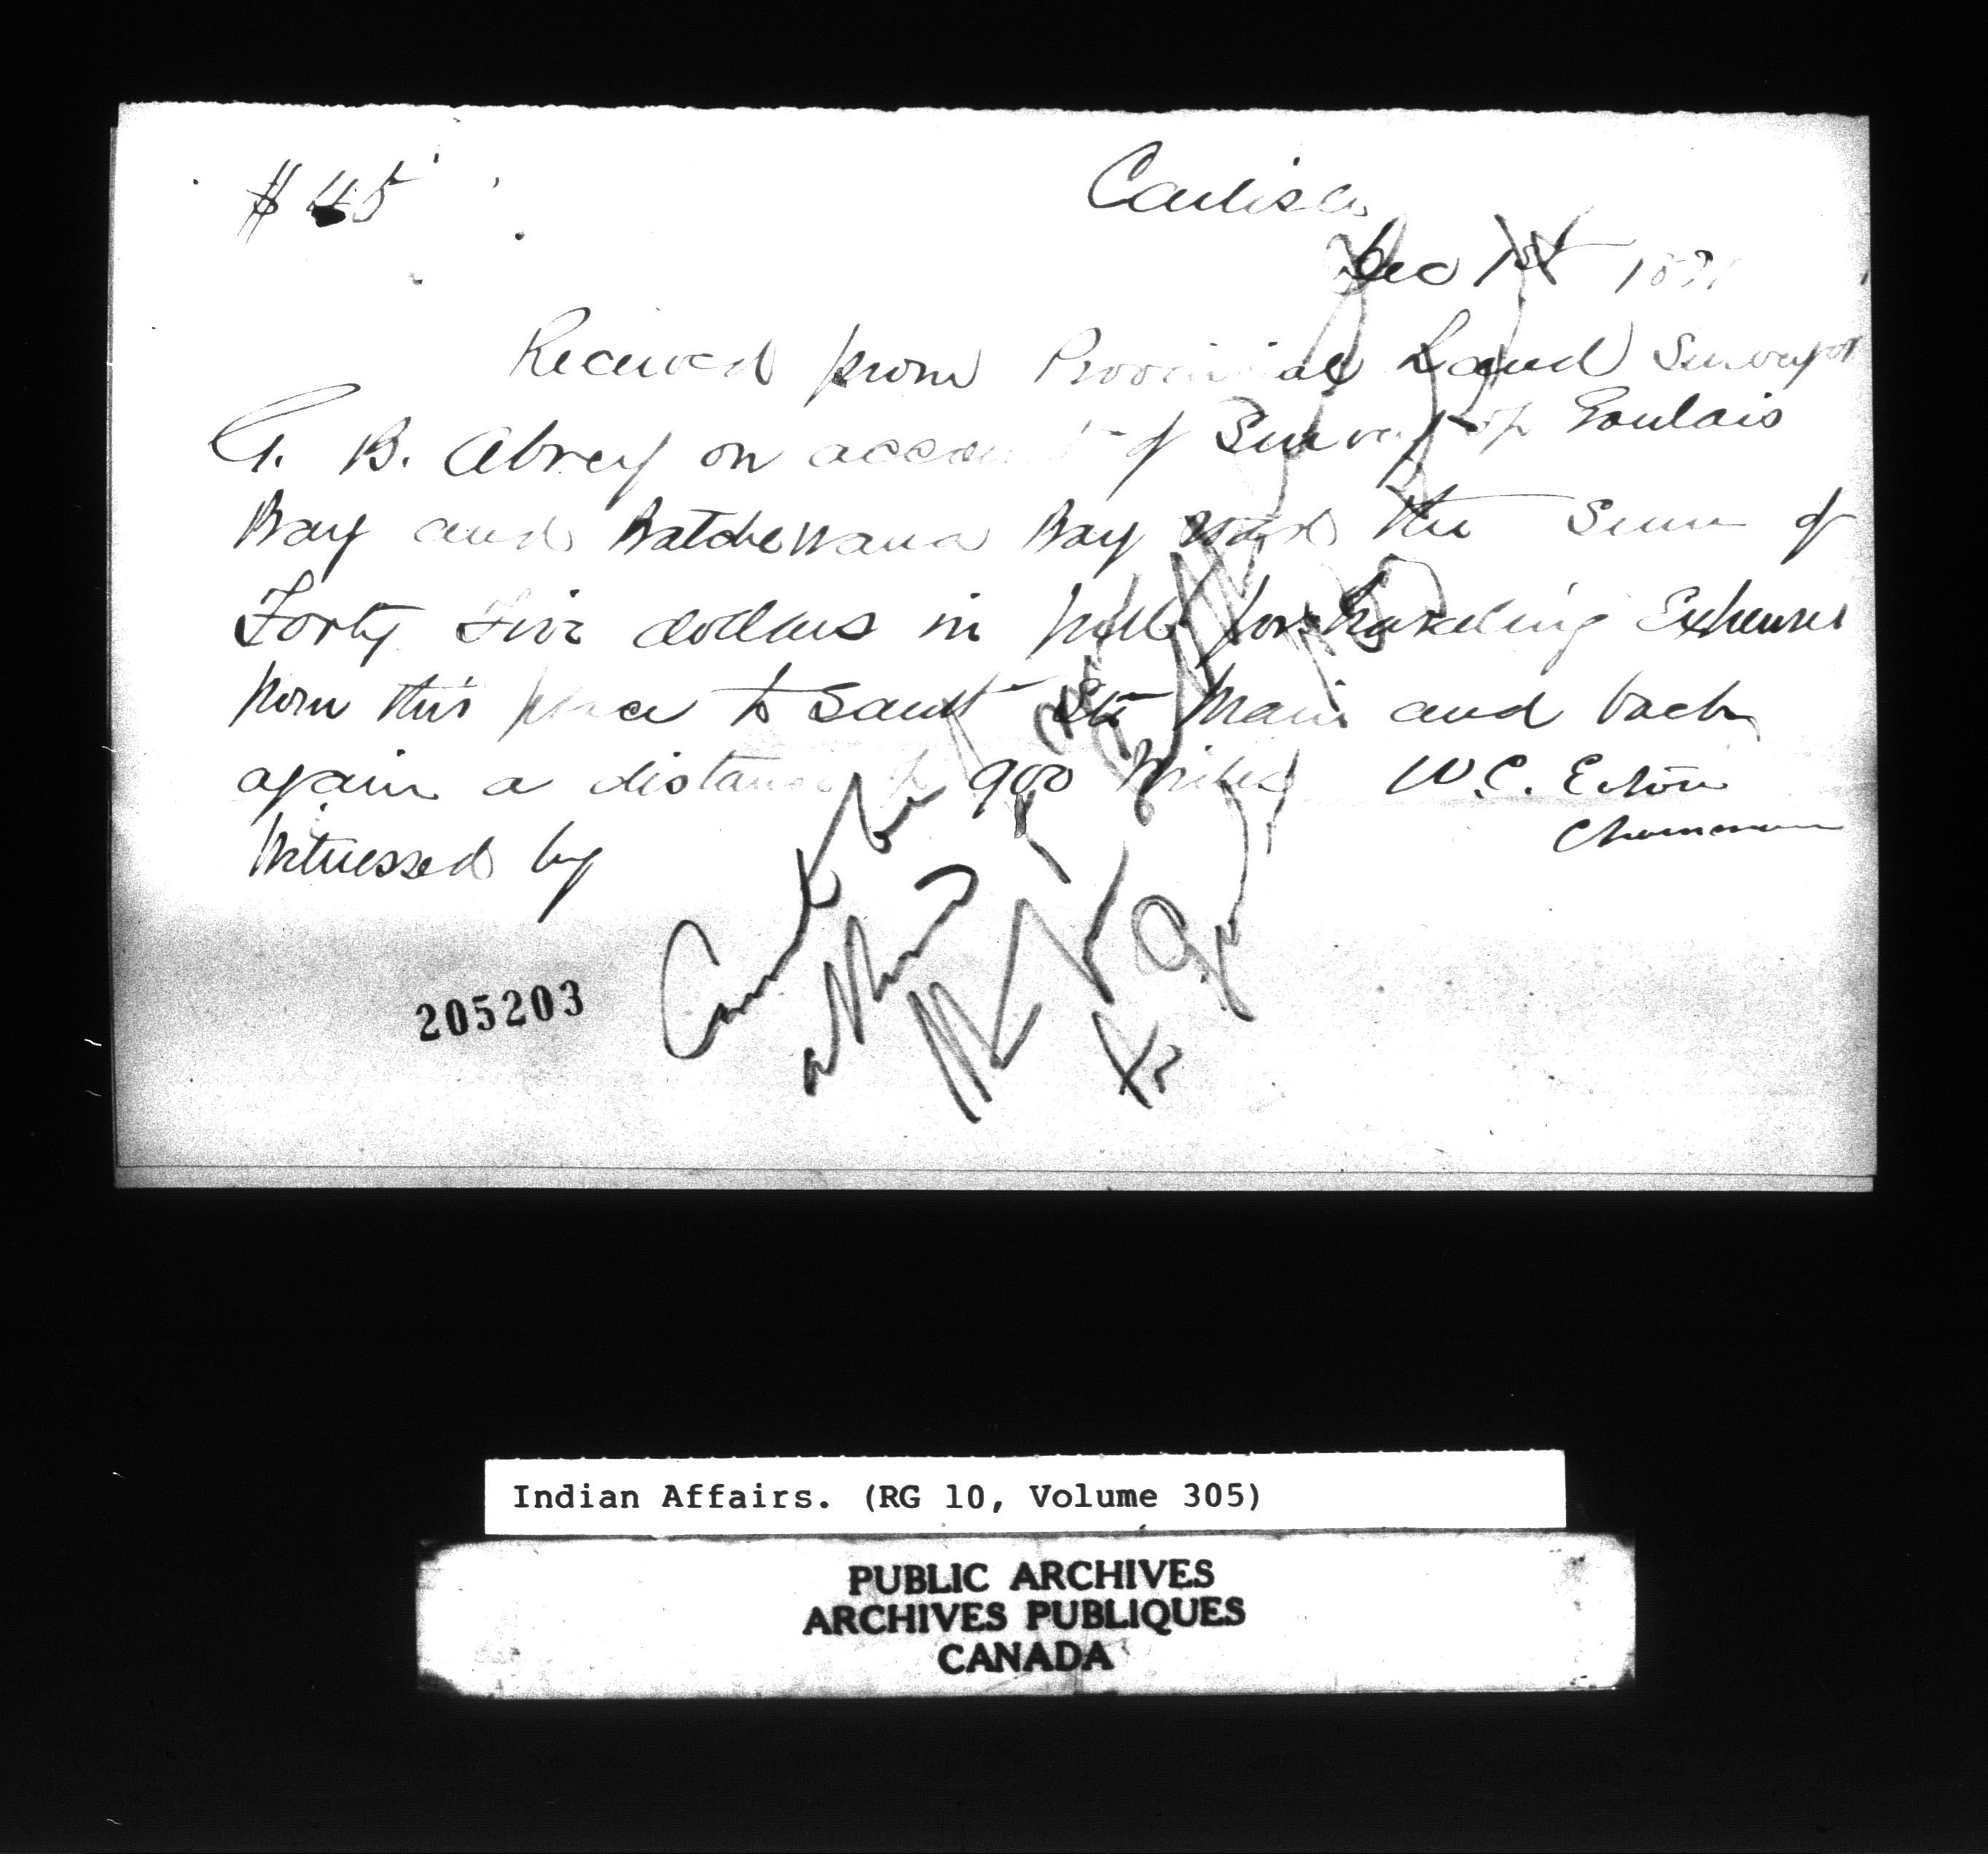 $ 45
Carlisle
Dec 1st 18
Received from Provincial Land Surveyor
G. B. Abrey on account of Survey of Goulais
Bay and Batchewana Bay the Sum of
Forty Five dollars in full for traveling Expenses
from this place to Sault Ste Marie and back
again a distance of 900 Miles W. C. Eaton
Chainman
Witnessed by
Cannot be
205203
Indian Affairs. (RG 10, Volume 305)
PUBLIC ARCHIVES
ARCHIVES PUBLIQUES
CANADA